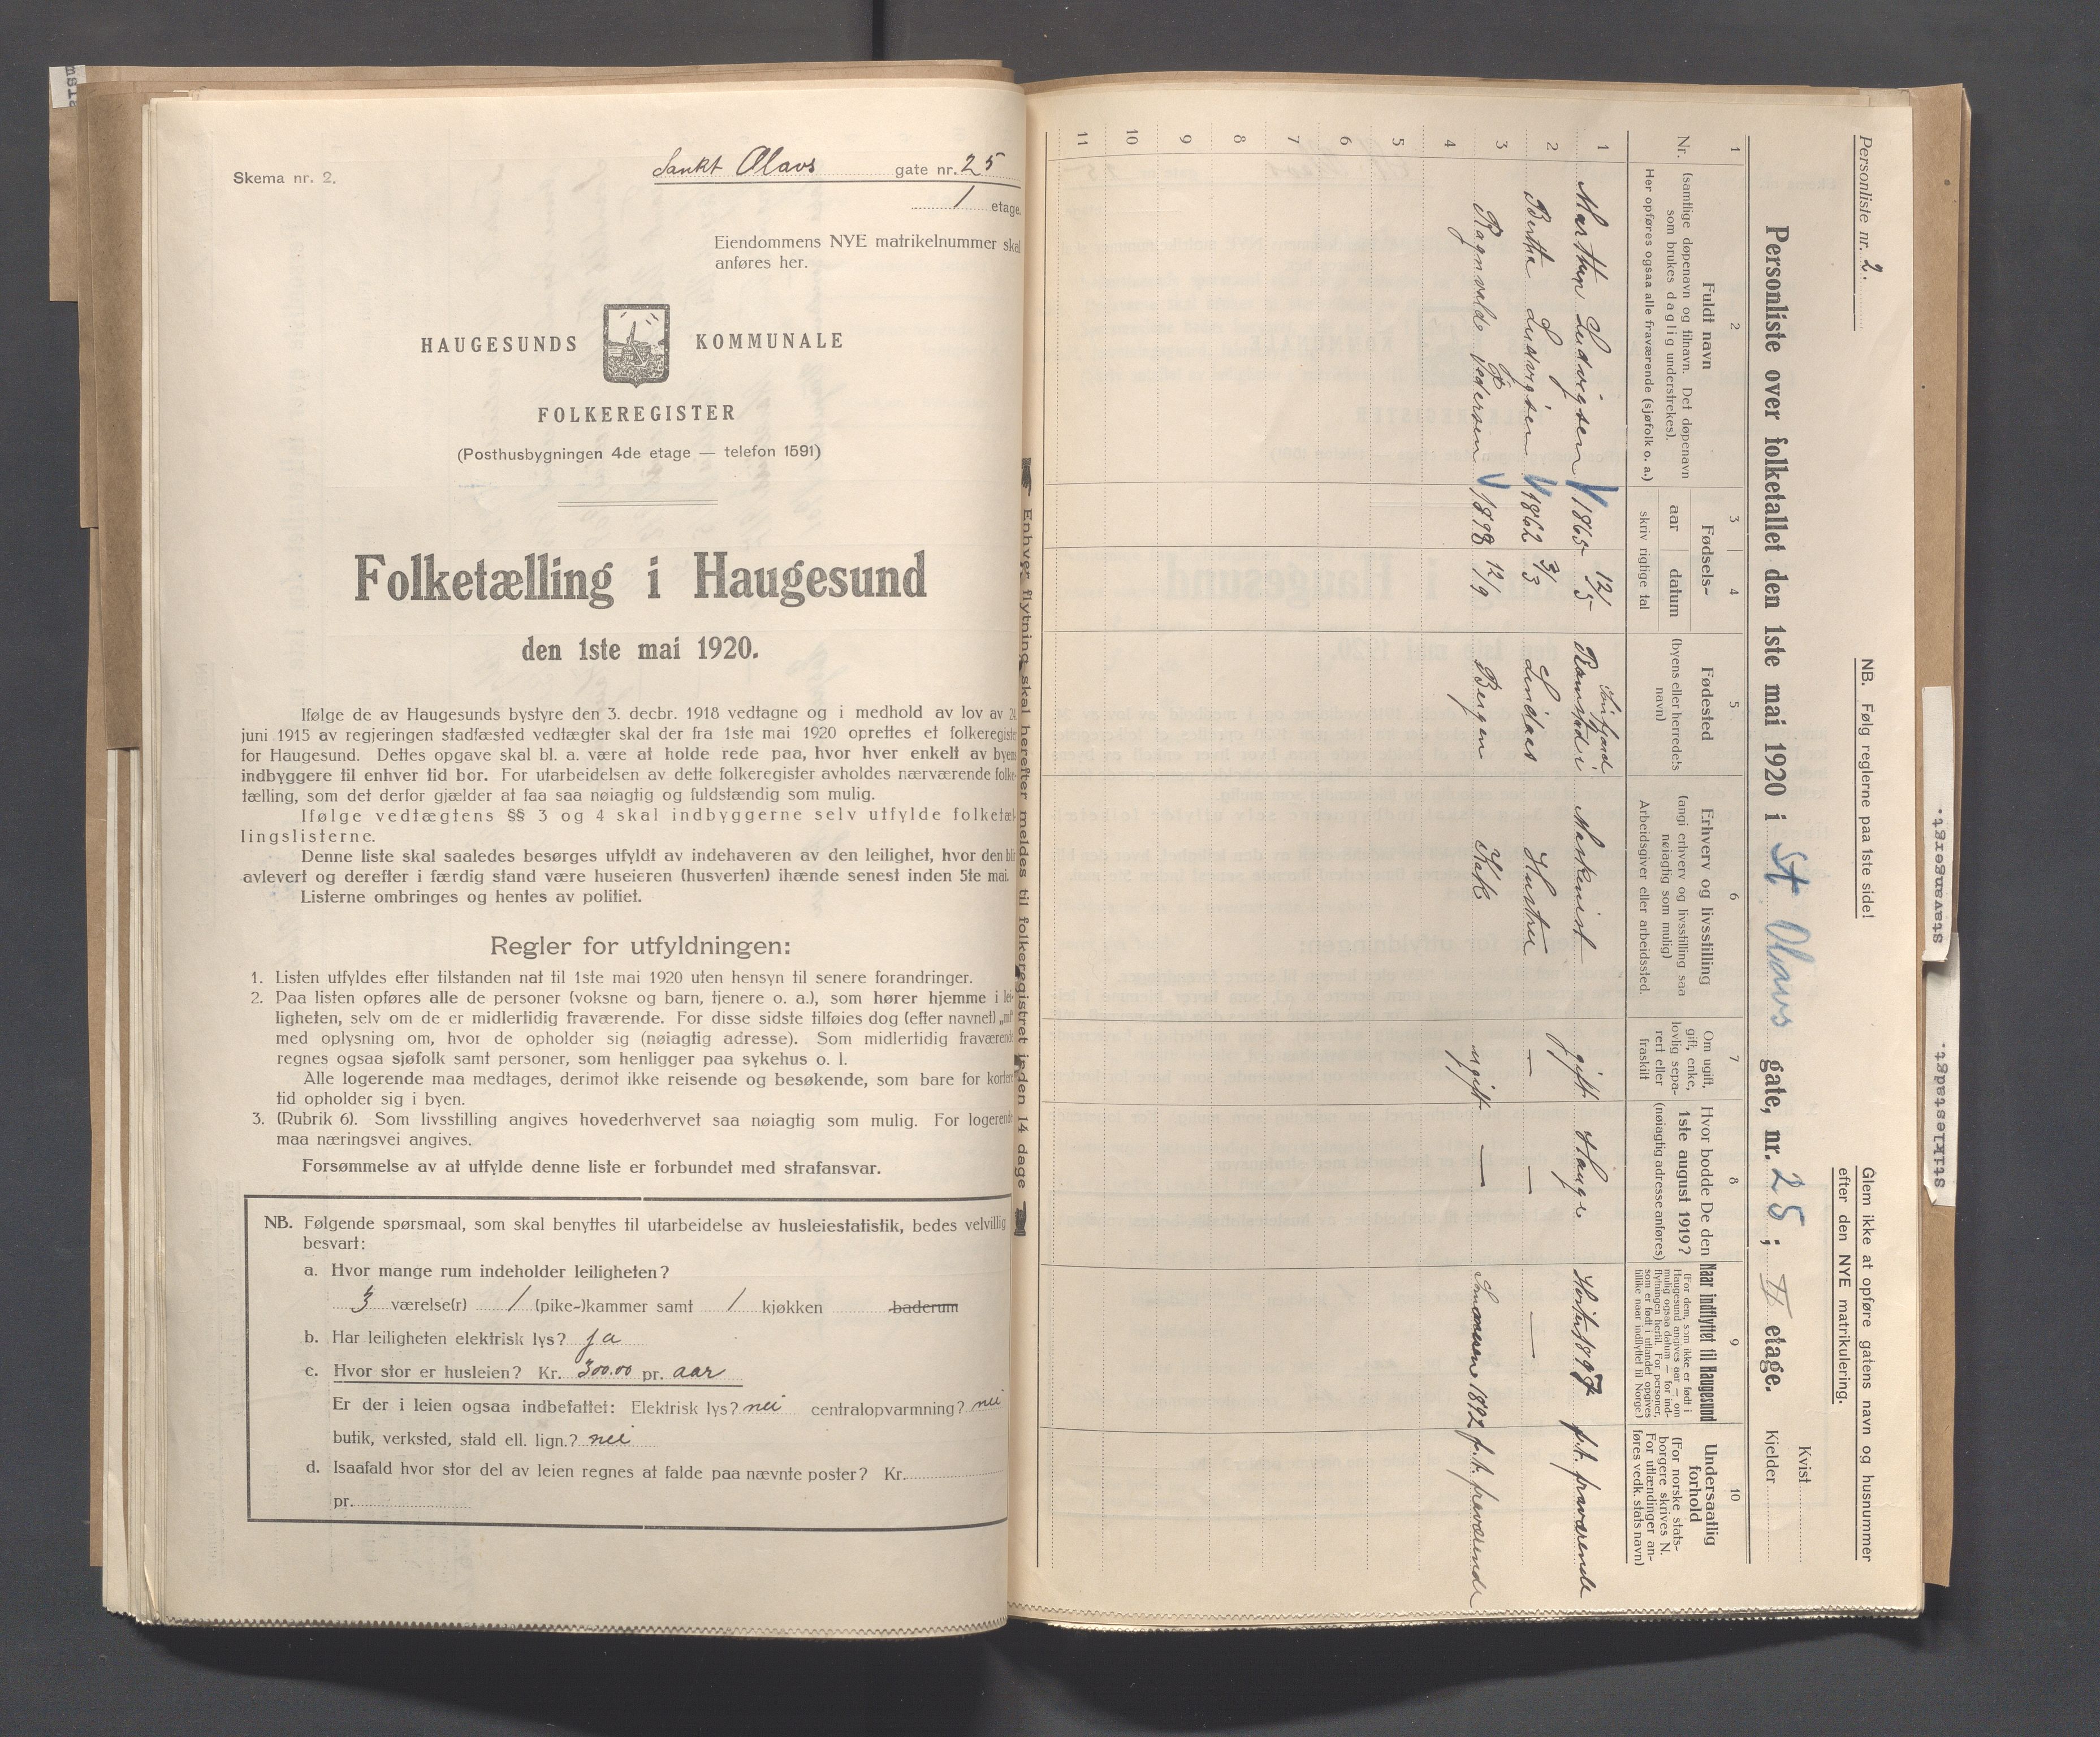 Skema nr. 2.
Sankt Olavs gate nr. 25
1 etage.
Eiendommens NYE matrikelnummer skal
anføres her.
HAUGESUNDS KOMMUNALE
FOLKEREGISTER
(Posthusbygningen 4de etage — telefon 1591)
Folketælling i Haugesund
den 1ste mai 1920.
Ifølge de av Haugesunds bystyre den 3. decbr. 1918 vedtagne og i medhold av lov av 24
juni 1915 av regjeringen stadfæsted vedtægter skal der fra 1ste mai 1920 oprettes et folkeregister
for Haugesund. Dettes opgave skal bl. a. være at holde rede paa, hvor hver enkelt av byens
indbyggere til enhver tid bor. For utarbeidelsen av dette folkeregister avholdes nærværende folke-
tælling, som det derfor gjælder at faa saa nøiagtig og fuldstændig som mulig.
Ifølge vedtægtens §§ 3 og 4 skal indbyggerne selv utfylde folketæl-
lingslisterne.
Denne liste skal saaledes besørges utfyldt av indehaveren av den leilighet, hvor den blir
avlevert og derefter i færdig stand være huseieren (husverten) ihænde senest inden 5te mai.
Listerne ombringes og hentes av politiet.
Regler for utfyldningen:
1. Listen utfyldes efter tilstanden nat til 1ste mai 1920 uten hensyn til senere forandringer.
2. Paa listen opføres alle de personer (voksne og barn, tjenere o. a.), som hører hjemme i lei-
ligheten, selv om de er midlertidig fraværende. For disse sidste tilføies dog (efter navnet) „mf"
med oplysning om, hvor de opholder sig (nøiagtig adresse). Som midlertidig fraværende
regnes ogsaa sjøfolk samt personer, som henligger paa sykehus o. l.
Alle logerende maa medtages, derimot ikke reisende og besøkende, som bare for kortere
tid opholder sig i byen.
3. (Rubrik 6). Som livsstilling angives hovederhvervet saa nøiagtig som mulig. For logerende
maa næringsvei angives.
Forsømmelse av at utfylde denne liste er forbundet med strafansvar.
NB. Følgende spørsmaal, som skal benyttes til utarbeidelse av husleiestatistik, bedes velvillig
besvart:
a. Hvor mange rum indeholder leiligheten?
3 værelse(r) 1 (pike-)kammer samt 1 kjøkken baderum
b. Har leiligheten elektrisk lys? ja
c. Hvor stor er husleien? Kr. 300.00 pr. aar
Er der i leien ogsaa indbefattet: Elektrisk lys? nei centralopvarmning? nei
butik, verksted, stald ell. lign.? nei
d. Isaafald hvor stor del av leien regnes at falde paa nævnte poster? Kr.
pr.
Enhver flytning skal herefter meldes til folkeregistret inden 14 dage
Personliste nr. 2.
NB. Følg reglerne paa 1ste side!
Glem ikke at opføre gatens navn og husnummer
efter den NYE matrikulering.
Personliste over folketallet den 1ste mai 1920 i St Olavs gate, nr. 25; II etage.
Kvist
Kjelder
1 2 3 4 5 6 7 8 9 10
Nr.
Fuldt navn
(samtlige døpenavn og tilnavn. Det døpenavn
som brukes daglig understrekes).
Her opføres ogsaa alle fraværende (sjøfolk o. a.)
Fødsels-
aar datum
skriv rigtige tal
Fødested
(byens eller herredets
navn)
Erhverv og livsstilling
(angi erhverv og livsstilling saa
nøiagtig som mulig)
Arbeidsgiver eller arbeidssted.
Om ugift,
gift, enke,
lovlig sepa-
rert eller
fraskilt
Hvor bodde De den
1ste august 1919?
(nøiagtig adresse anføres)
Naar indflyttet til Haugesund
(For dem, som ikke er født i
Haugesund angives aar — om
mulig ogsaa datum — for ind-
flytningen hertil. For personer,
som er født i utlandet opgives
tillike naar indflyttet til Norge.)
Undersaatlig
forhold
(For norske stats-
borgere skrives N.
For utlændinger an-
føres vedk. stats navn)
1 Marthin Ludvigsen 1865 12/5 Ramsfjord i Maskinist gift Hauge Høsten 1897 p.t. fraværende
2 Bertha L Ludvigsen 1862 3/3 Lindaas Hustru — — —
3 Ragnvald J Pedersen 1898 12/9 Bergen Kok ugift — Sommeren 1892 p.t. fraværende
4
5
6
7
8
9
10
11
Stavangergt.
Stiklestadgt.